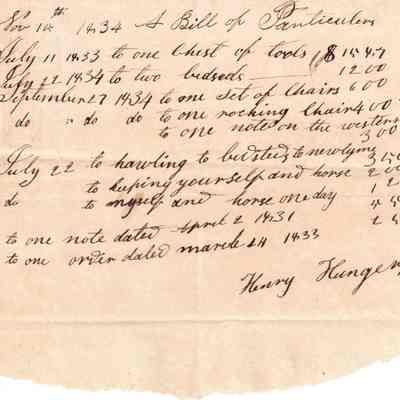 Nov 10th 1834 A Bill of Particulers
July 11 1833 to one Chest of tools $ 15.87
July 22 1834 to two bedseds 12 00
September 27 1834 to one set of Chairs 6 00
do " do do to one rocking Chair 4 00
to one note on the western
3 00
July 22 to hawling to bedsteds to newlyme
to keping yourself and horse 2 00
do to myself and horse one day
to one note dated Aprel 2 1831
to one order dated march 24 1833
Henry Hunger